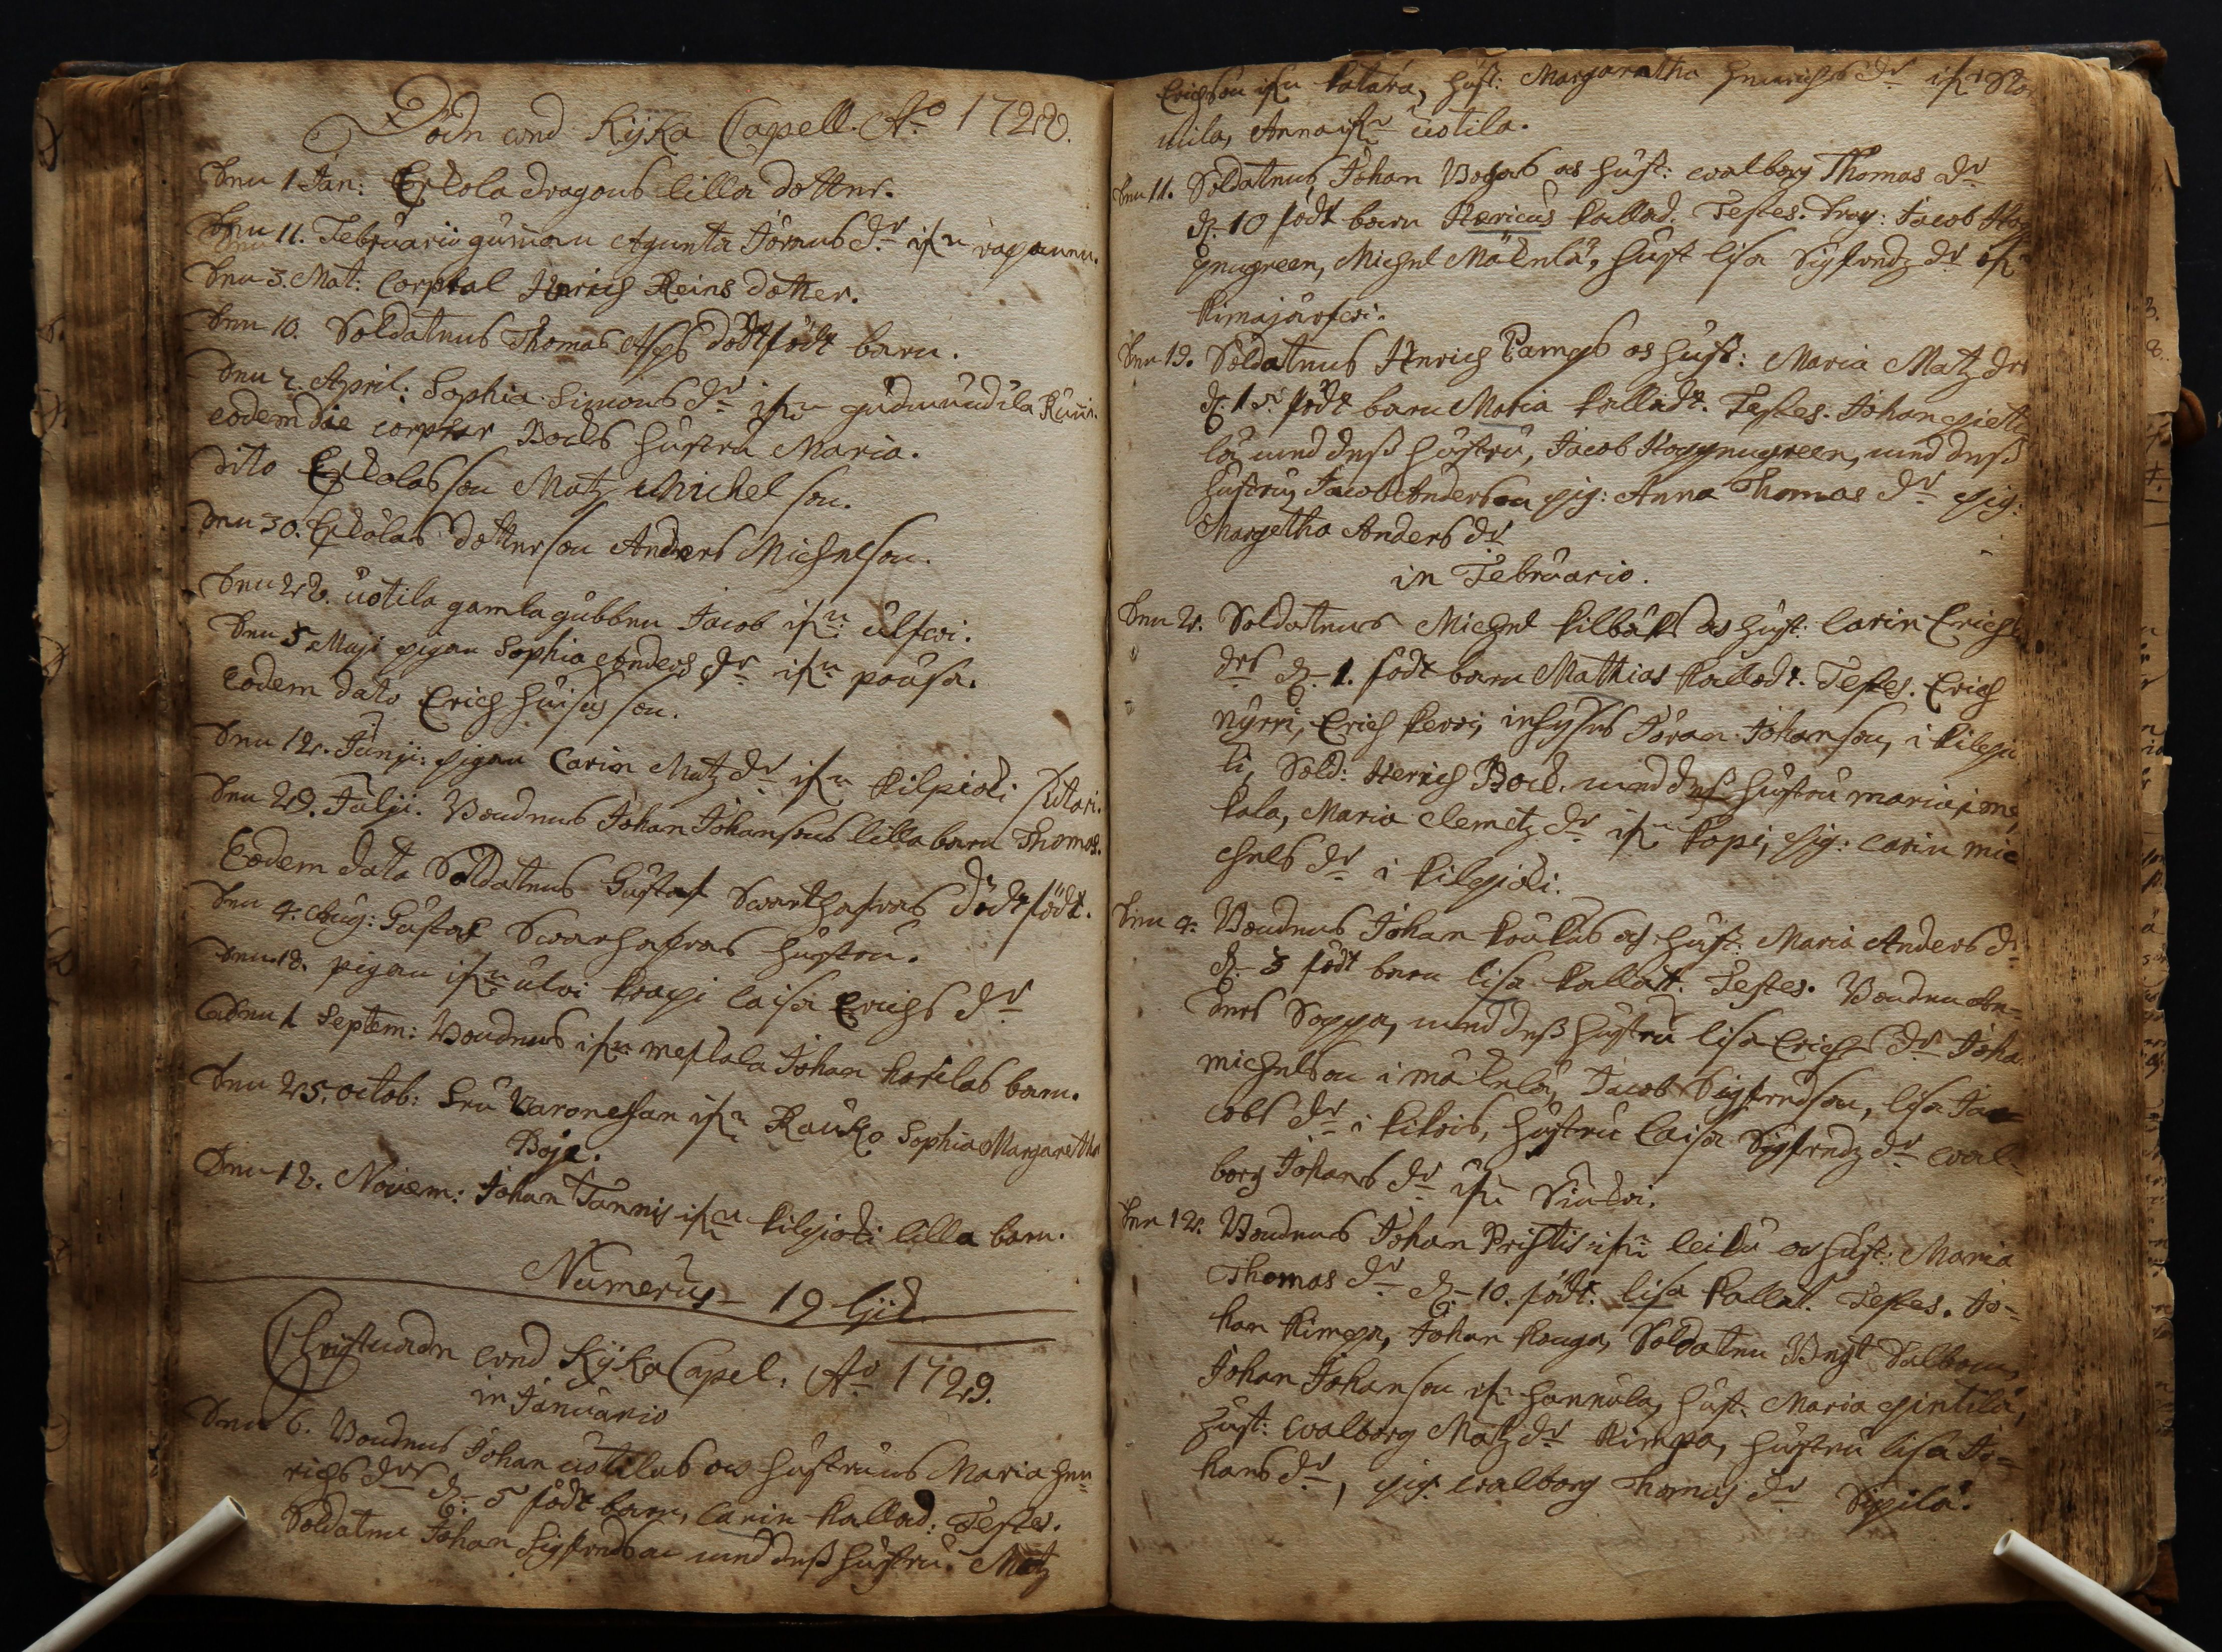 Döde wed Kyka Capell. Ao 1728.
Den 1 Jan: Erkola dragons lilla dotter.
Den 11. Februarii gumman Agneta Jörans dr ifrn
Den 3. Mat: Corpral Henrich Reins dotter.
Den 10. Soldatens Thomas Asps dödfödt barn.
Den 2. April: Sophia Simons dr ifrn gudmundila
eodem die corpler Bocks hustru Maria.
dito Erkolas son Matz Michel son.
Den 30. Erkolas dotterson Anders Michelson.
Den 28. uotila gamla gubben Jacob ifrn: ulfwi.
Den 5 Maji pigan Sophia Anders dr ifrn pousa.
Eodem dato Erich huisus son.
Den 12. Junji: pigan Carin Matz dr ifrn kilpioki
Den 29. Julji. Bondens Johan Johansons lilla barn Thomas.
Eodem data Soldatens Gustaf Swarthafwas dödtfödt.
Den 4: Aug: Gustaf Swarhafwas hustru.
Den 18. pigan ifrn ulwi krapi laisa Erichs dr
Den 1 Septem: Bondens ifrn meskala Johan barn.
Den 25. octob: Fru Baronessan ifrn Rauko Sophia Margaretha
Boje.
Den 12. Novem: Johan Tannis ifrn kilpioki lilla barn.
Numerus 19 lijk
Christnade wed Kyka Capel. Ao 1729.
in Januario
Den 6. Bondens Johan uotilas ow hustruns Maria Hen=
richs drs d. 5 födt barn, Carin kallad: Testes.
Soldaten Johan Sigfredson med dess hustru. Matz
Erichson ifrn katara, hust: Margaretha Henrichs dr ifrn
mila, Anna ifrn uotila.
Den 11. Soldatens Johan Bogas os hust: walborg Thomas dr
d. 10 födt barn Hericus kallad. Testes. Drag: Jacob
pengreen, Michel Mäkelä, hust lisa Sigfredz dr ifrn
kimajärfwi.
Den 19. Soldatens Henrich Camps os hust: Maria Matz drs
d. 15 födt barn Maria kalladt. Testes. Johan pietti
lä med dess hustru, Jacob Hoppengreen, med dess
hustru, Jacob Anderson pig: Anna Thomas dr pig:
Margetha Anders dr
in Februario.
Den 2. Soldatens Michel kilbäks os hust: Carin Erichs
drs d. 1. födt barn Mathias kalladt. Testes. Erich
nyrri, Erich kerwi, inhyses Jöran Johanson, i kilpio
ki, Sold: Herich Bock. med dess hustru maria i mes
kala, Maria Clemetz dr ifrn kopi, pig: Carin mic
chels dr i kilpioki.
Den 4: Bondens Johan koukas os hust: Maria Anders dr
d. 3 födt barn lisa kallatt. Testes. Bonden An=
ders Soppa, med dess hustru lisa Erichs dr Joha
michelson i mäkelä, Jacob Sigfredson, lisa Ja=
cobs dr i kikois, hustru laisa Sigfredz dr wal
borg Johans dr ifrn
Den 12. Bondens Johan Pristis ifrn leiku os hust: Maria
Thomas dr d. 10. födt: lisa kallat. Testes. Jo=
han kimpa, Johan kouga, Soldaten Bngt Dalbom,
Johan Johanson ifrn hannula, hust: Maria pintilä,
hust: walborg Matz dr kimpa, hustru lisa Jo=
hans dr, pig: walborg Thomas dr Sipilä.